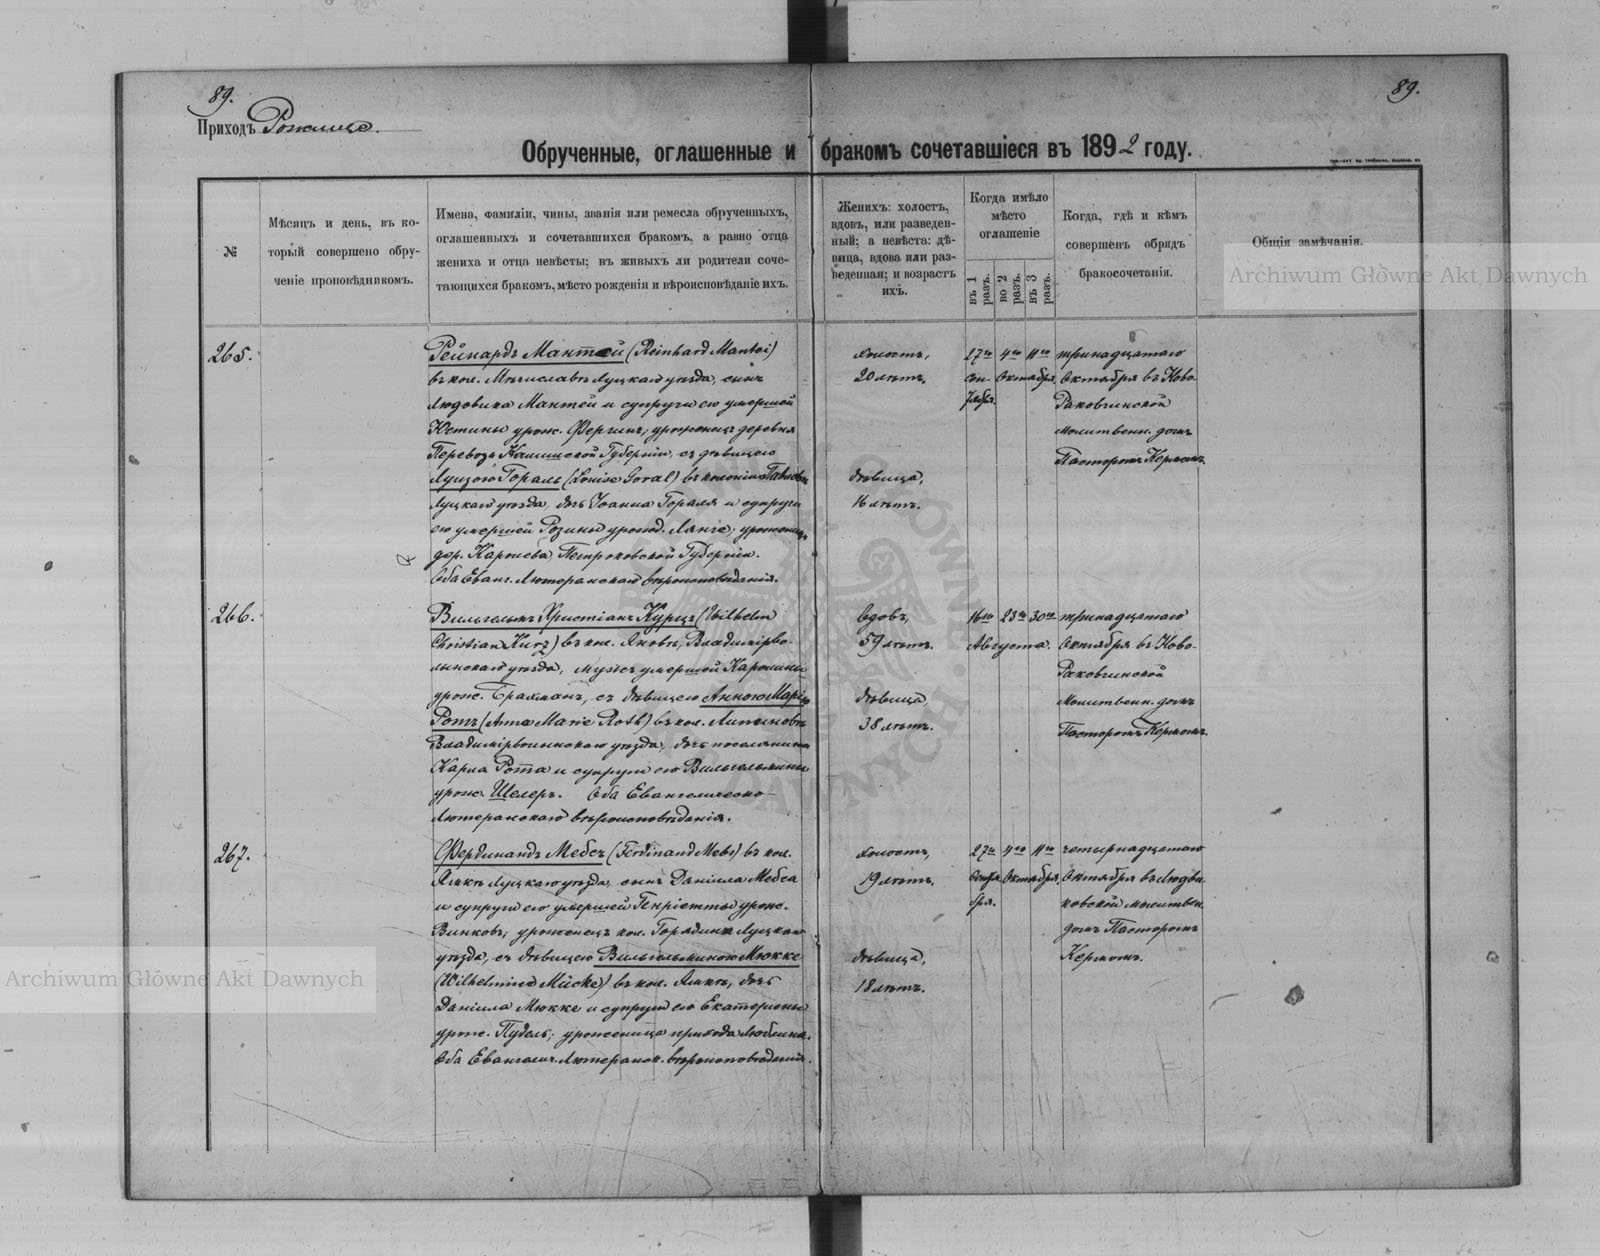 89.
89.
Приходъ Рожище.
Обрученные, оглашенные и бракомъ сочетавшіеся въ 1892 году.
№
Мѣсяцъ и день, въ ко-
торый совершено обру-
ченіе проповѣдникомъ.
Имена, фамиліи, чины, званія или ремесла обрученныхъ,
оглашенныхъ и сочетавшихся бракомъ, а равно отца
жениха и отца невѣсты; въ живыхъ ли родители соче-
тающихся бракомъ, мѣсто рожденія и вѣроисповѣданіе ихъ.
Женихъ: холостъ,
вдовъ, или разведен-
ный; а невѣста: дѣ-
вица, вдова или раз-
веденная; и возрастъ
ихъ.
Когда имѣло
мѣсто
оглашеніе
въ 1 разъ.
во 2 разъ.
въ 3 разъ.
Когда, гдѣ и кѣмъ
совершенъ обрядъ
бракосочетанія.
Общія замѣчанія.
Archiwum Główne Akt Dawnych
265.
Рейнардъ Мантей (Reinhard Mantei)
въ кол. Мѣчиславъ Луцкаго уѣзда, сынъ
Людовика Мантей и супруги его умершей
Юстины урож. Фергинъ, уроженецъ деревни
Перевозъ Калишской Губерніи, съ дѣвицею
Луизою Гораль (Louise Goral) въ колоніи
Луцкаго уѣзда, дочь Іоанна Гораля и супруги
его умершей Розины урожд. Лянге, урожениц.
дер. Каролева, Петроковской Губерніи.
Оба Еванг. Лютеранскаго вѣроисповѣданія.
холостъ,
20 лѣтъ.
дѣвица,
16 лѣтъ.
27го 4го 11го
Сен- Октября.
тября.
тринадцатаго
Октября въ Ново-
Раковчинской
молитвен. домѣ
Пасторомъ Кермомъ.
266.
Вильгельмъ Христіанъ Курцъ (Wilhelm
Christian Kurz) въ кол. Яновкѣ, Владимірво-
лынскаго уѣзда, мужъ умершей Каролины
урож. Брахманъ, съ дѣвицею Анною Маріею
Ротъ (Anna Marie Roth) въ кол.
Владимірволынскаго уѣзда, дочь поселянина
Карла Рота и супруги его Вильгельмины
урож. Шелеръ. Оба Евангелическо-
Лютеранскаго вѣроисповѣданія.
вдовъ,
59 лѣтъ.
дѣвица,
38 лѣтъ.
16го 23го 30го
Августа.
тринадцатаго
Октября въ Ново-
Раковчинской
Молитвен. домѣ
Пасторомъ Кермомъ.
267.
Фердинандъ Мебсъ (Ferdinand Mebs) въ кол.
Луцкаго уѣзда, сынъ Даніила Мебса
и супруги его умершей Генріетты урож.
Винковъ, уроженецъ кол. Луцкаго
уѣзда, съ дѣвицею Вильгельминою Мюкке
(Wilhelmine Mücke) въ кол. дочь
Даніила Мюкке и супруги его Екатерины
урож. Пудель, уроженица прихода Люблина.
Оба Евангелич. Лютеранск. вѣроисповѣданія.
холостъ,
19 лѣтъ.
дѣвица,
18 лѣтъ.
27го 4го 11го
Сентя- Октября.
бря.
четырнадцатаго
Октября въ Людви-
ковской молитвен.
домѣ Пасторомъ
Кермомъ.
Archiwum Główne Akt Dawnych